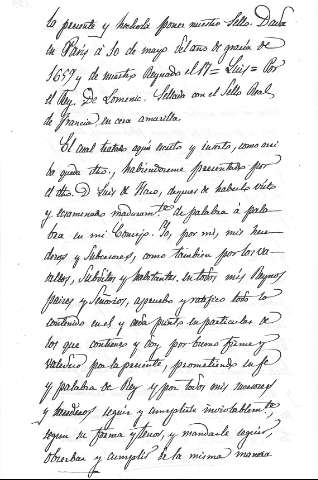 la presente y hecholа poner nuestro Sello. Dada
en París á 30 de mayo del año de gracia de
1659 y de nuestro Reynado el 17 = Luis = Por
el Rey. De Lomenie. Sellada con el Sello Real
de Francia en cera amarilla.
El cual tratado aquí escrito y inserto, como arri
ba queda dho., habiendoseme presentado por
el dho. D. Luis de Haro, despues de haberlo visto
y examinado maduramte. de palabra á pala-
bra en mi Consejo. Yo, por mi, mis here-
deros y Subcesores, como tambien por los va-
sallos, Subditos y habitantes en todos mis Reynos
paises y Señorios, apruebo y ratifico todo lo
contenido en el y cada punto en particular de
los que contiene y doy por bueno firme y
valedero por la presente, prometiendo en fe
y palabra de Rey y por todos mis sucesores
y herederos seguir y cumplirle inviolablemte.,
segun su forma y tenor, y mandarle seguir,
observar y cumplir de la misma manera